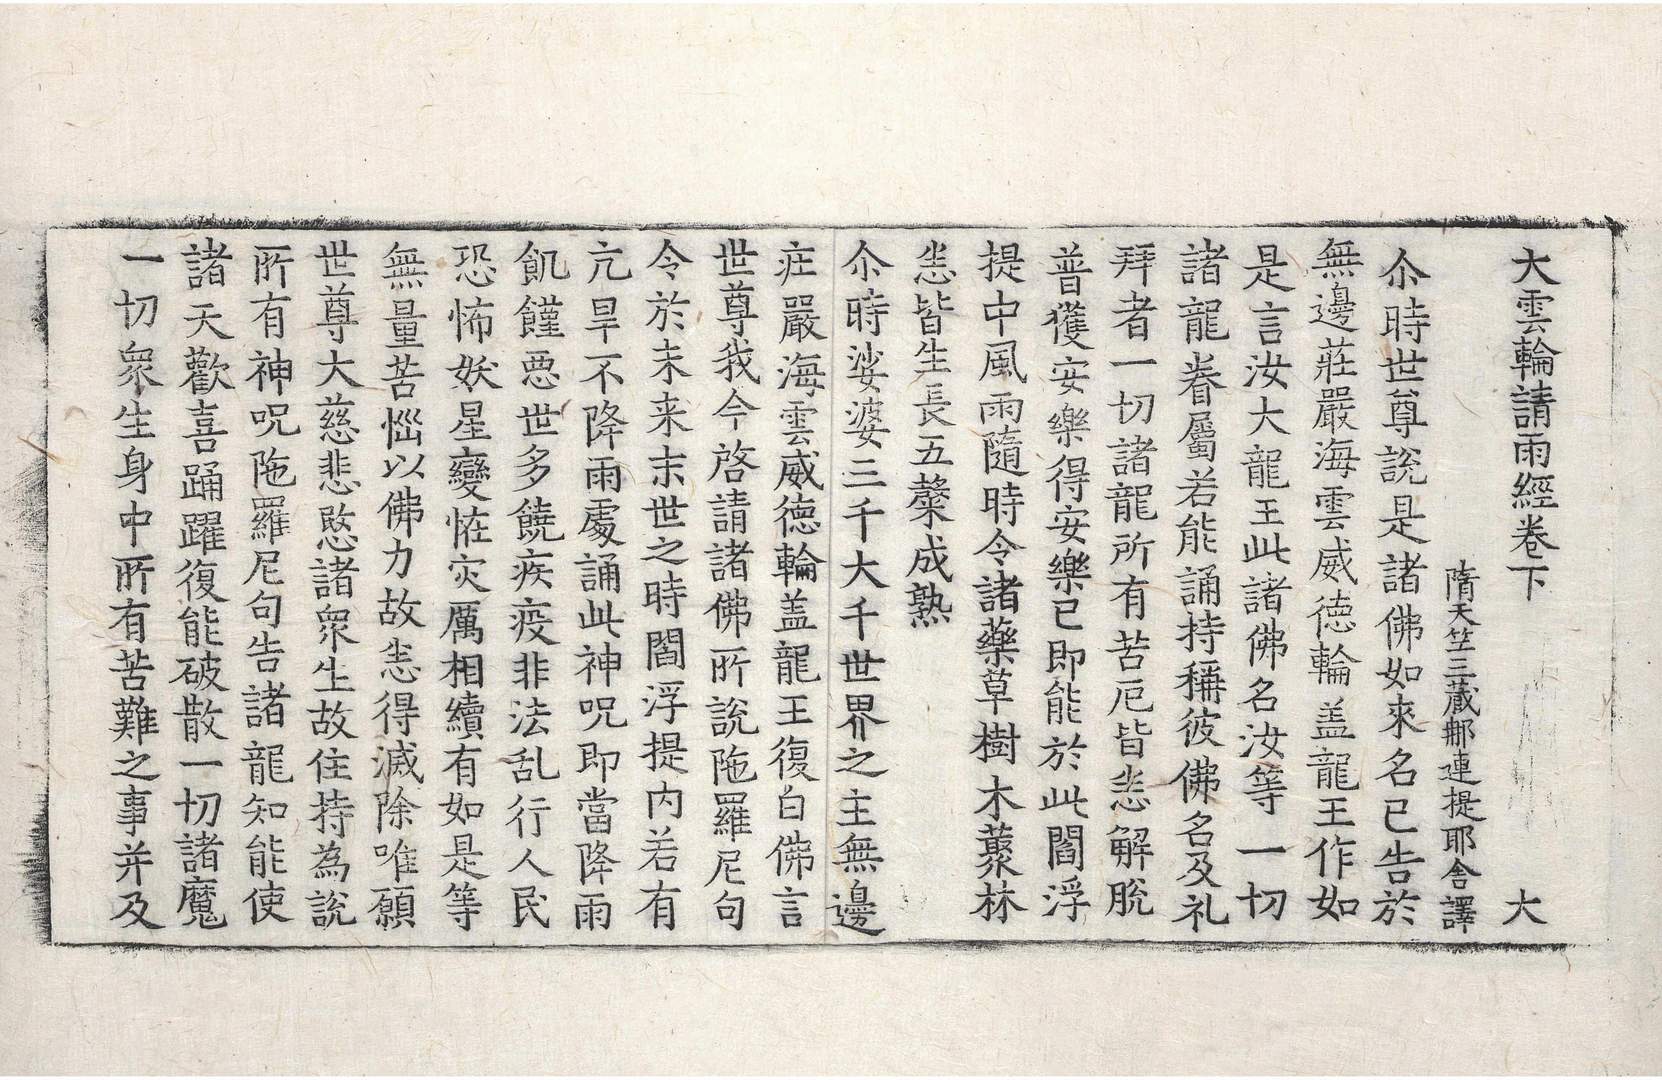 大雲輪請雨經卷下 大
隋天竺三藏那連提耶舍譯
尒時世尊說是諸佛如來名已告於
無邊莊嚴海雲威德輪盖龍王作如
是言汝大龍王此諸佛名汝等一切
諸龍眷屬若能誦持稱彼佛名及礼
拜者一切諸龍所有苦厄皆悉解脫
普獲安樂得安樂已即能於此閻浮
提中風雨隨時令諸藥草樹木藂林
悉皆生長五糓成熟
尒時娑婆三千大千世界之主無邊
庄嚴海雲威德輪盖龍王復白佛言
世尊我今啓請諸佛所說陁羅尼句
令於未来末世之時閻浮提內若有
亢旱不降雨處誦此神呪即當降雨
飢饉惡世多饒疾疫非法乱行人民
恐怖妖星變恠灾厲相續有如是等
無量苦惱以佛力故悉得滅除唯願
世尊大慈悲愍諸衆生故住持為說
所有神呪陁羅尼句告諸龍知能使
諸天歡喜踊躍復能破散一切諸魔
一切衆生身中所有苦難之事并及